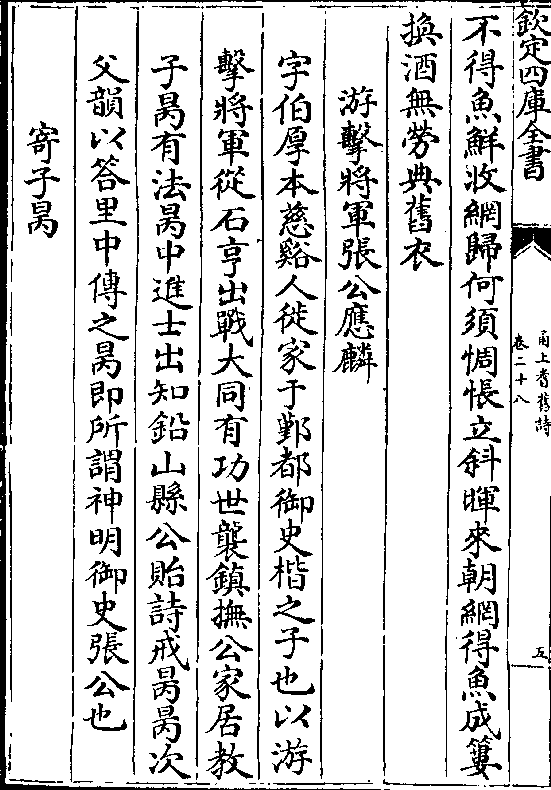 欽定四庫全書
甬上耆舊詩
卷二十八
五
不得魚鮮收網歸何須惆悵立斜暉來朝網得魚成簍
換酒無勞典舊衣
游擊將軍張公應麟
字伯厚本慈谿人徙家于鄞都御史楷之子也以游
擊將軍從石亨出戰大同有功世襲鎮撫公家居教
子昺有法昺中進士出知鉛山縣公貽詩戒昺昺次
父韻以答里中傳之昺即所謂神明御史張公也
寄子昺